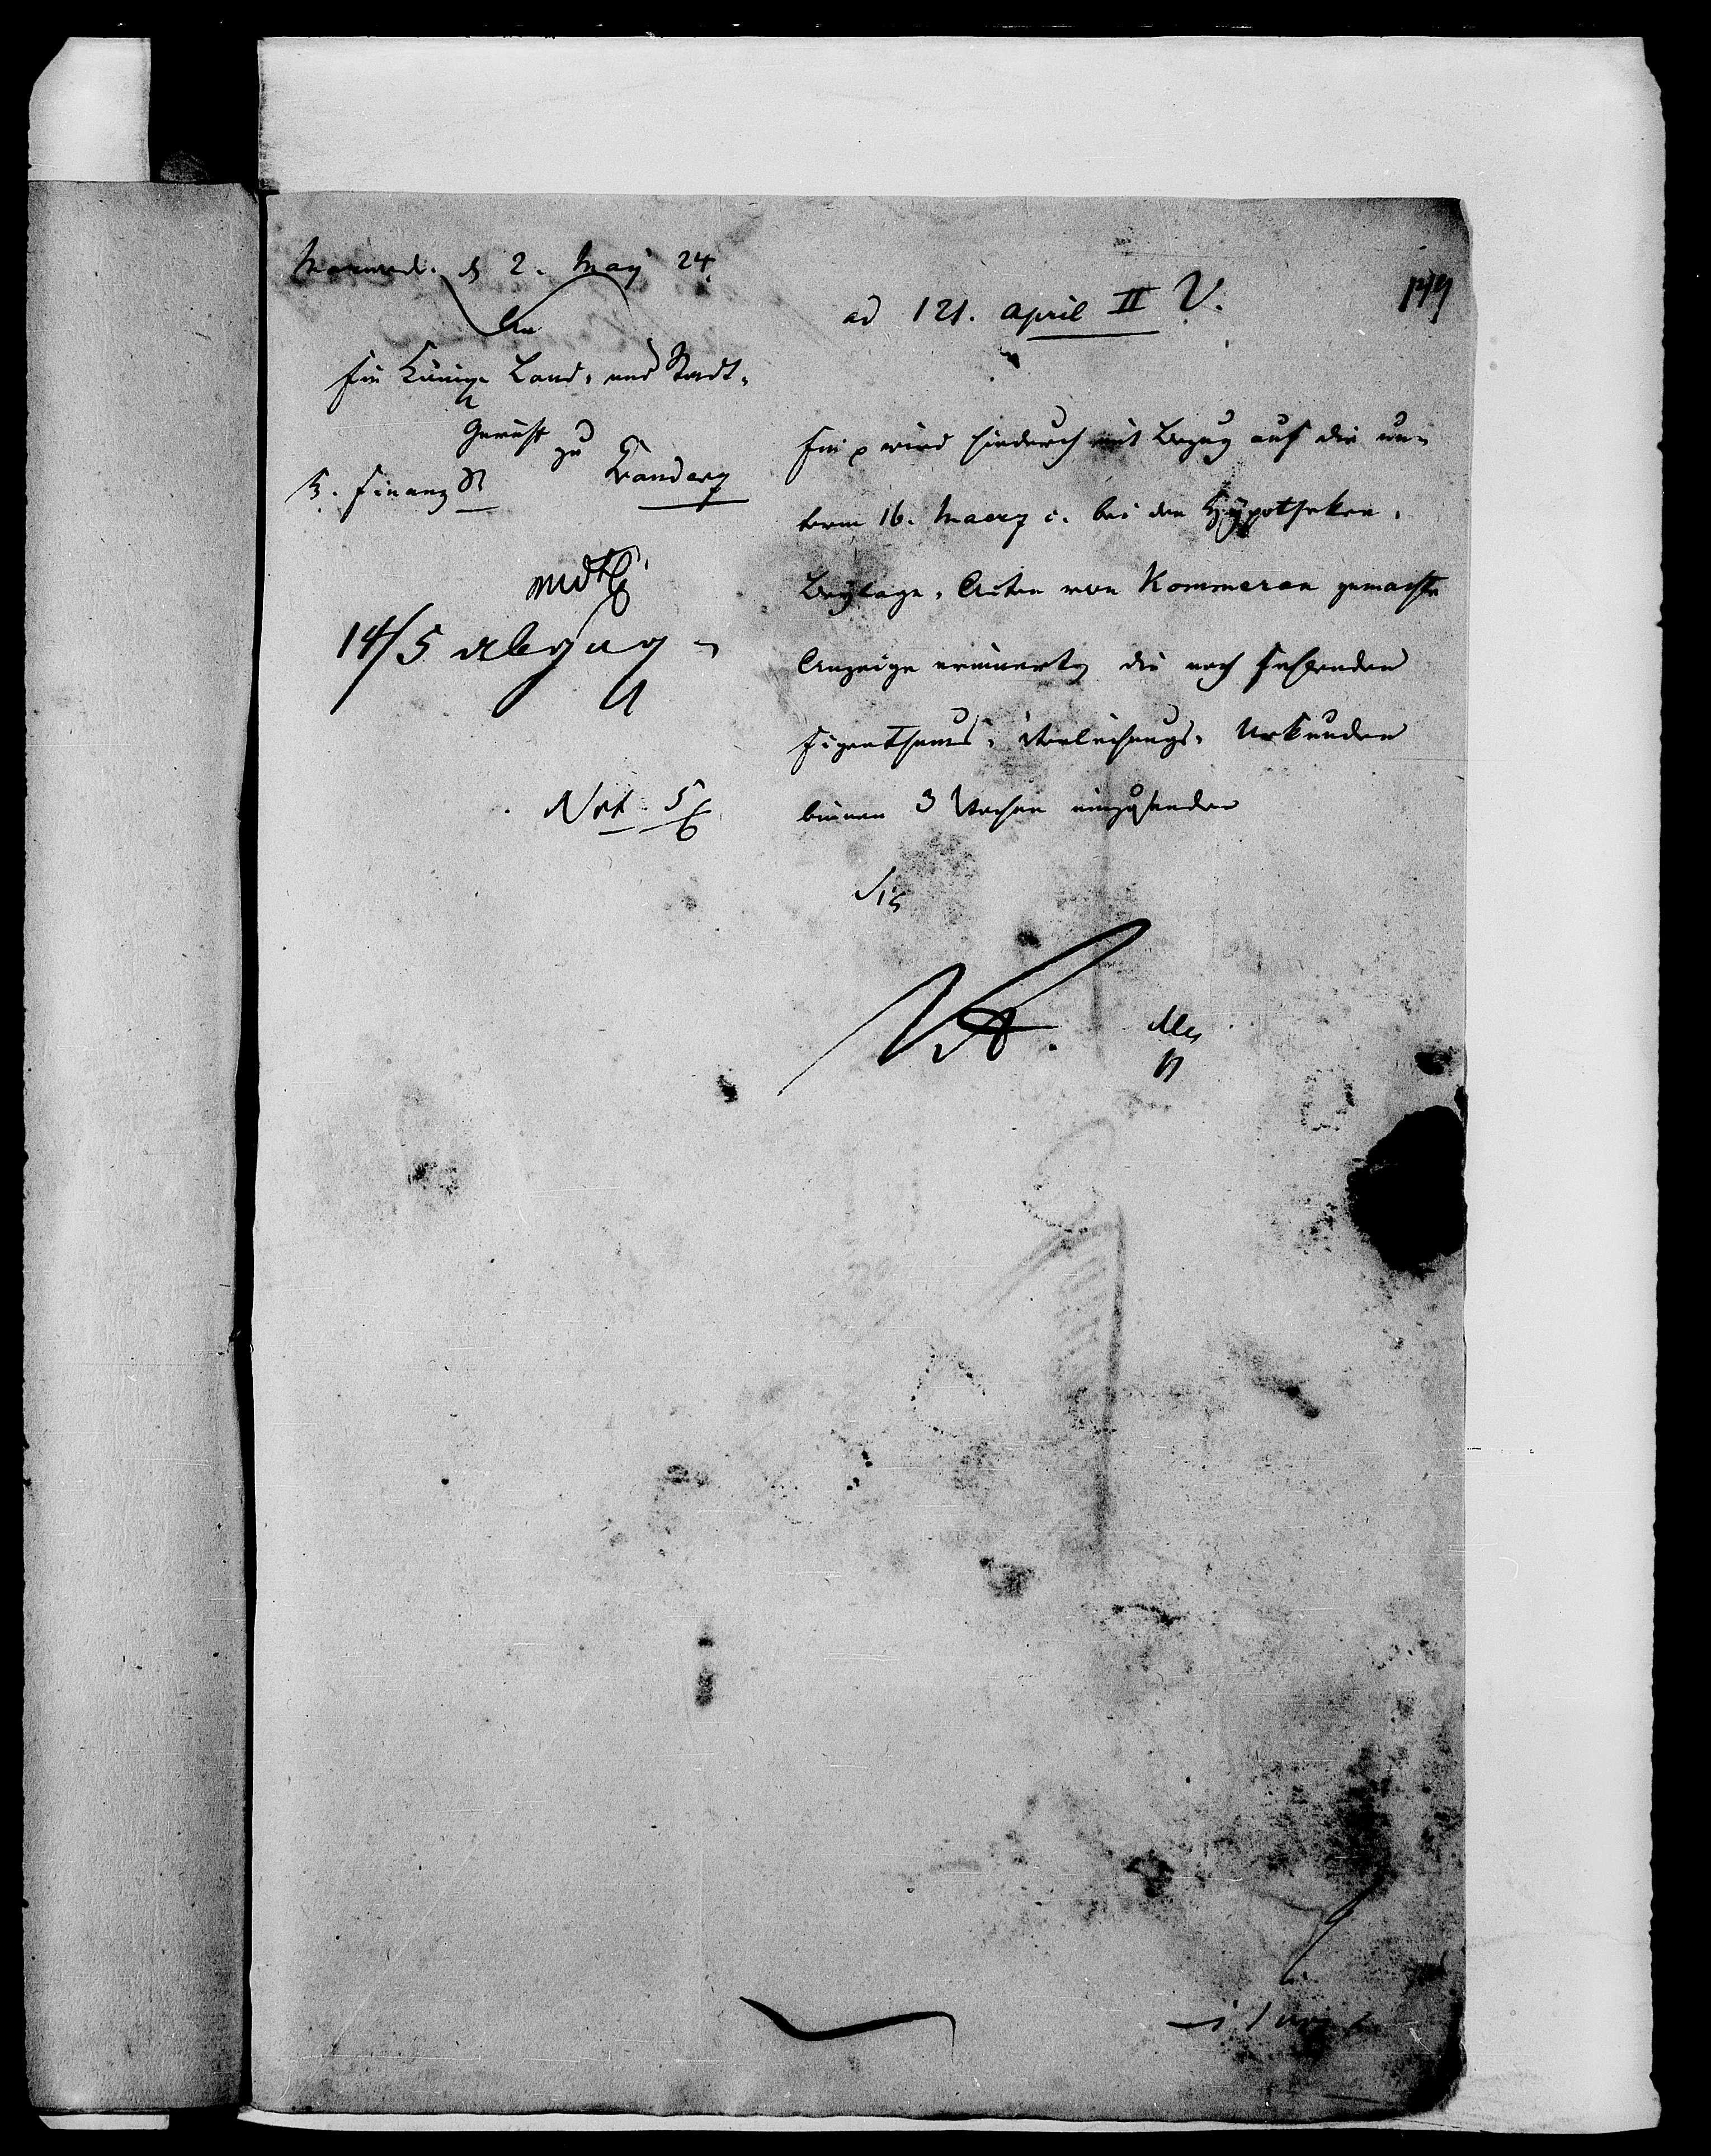 Marienwd. d 2. May 24.
An
Ein Königl Land- und Stadt-
Gericht
zu
Graudenz
K. Finanz
14/5 abgeg
Not. 5
ad 121. April II V.
Ein p wird hiedurch mit Bezug auf die un-
term 16. Maerz c. bei den Hypotheken-
Beylage-Acten von Kommerau gemachte
Anzeige erinnert, die noch fehlenden
Eigenthums-Verleihungs-Urkunden
binnen 3 Wochen einzusenden